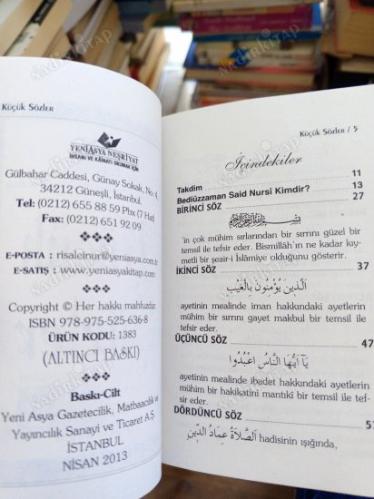 KÜÇÜK SÖZLER
YENİASYA NEŞRİYAT
Gülbahar Caddesi, Günay Sokak, No: 4
34212 Güneşli, İstanbul
Tel: (0212) 655 88 59 Pbx (7 Hat)
Fax: (0212) 651 92 09
E-POSTA : risaleinur@yeniasya.com.tr
E-SATIŞ : www.yeniasyakitap.com
Copyright © Her hakkı mahfuzdur.
ISBN 978-975-525-636-8
ÜRÜN KODU: 1383
(ALTINCI BASKI)
Baskı-Cilt
Yeni Asya Gazetecilik, Matbaacılık ve
Yayıncılık Sanayi ve Ticaret A.Ş.
İSTANBUL
NİSAN 2013
KÜÇÜK SÖZLER / 5
İçindekiler
Takdim 11
Bediüzzaman Said Nursî Kimdir? 13
BİRİNCİ SÖZ 27
'in çok mühim sırlarından bir sırrını güzel bir
temsil ile tefsir eder. Bismillâh'ın ne kadar kıy-
metli bir şeair-i İslâmiye olduğunu gösterir.
İKİNCİ SÖZ 37
اَلَّذِينَ يُؤْمِنُونَ بِالْغَيْبِ
ayetinin mealinde iman hakkındaki ayetlerin
mühim bir sırrını gayet makbul bir temsil ile tef-
sir eder.
ÜÇÜNCÜ SÖZ 47
يَا اَيُّهَا النَّاسُ اعْبُدُوا
ayetinin mealinde ibadet hakkındaki ayetlerin
mühim bir hakikatini mantıkî bir temsil ile tef-
sir eder.
DÖRDÜNCÜ SÖZ
اَلصَّلاَةُ عِمَادُ الدِّينِ hadisinin ışığında,